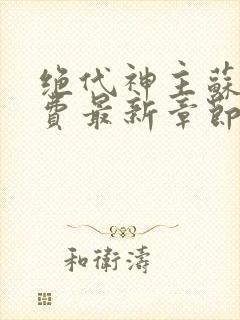 绝代神主蘇
費最新章節
和衛濤